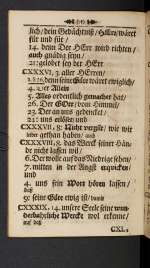 lich/dein Gedächtniß/HErr/wäret
für und für/
14. denn Der HErr wird richten/
auch gnädig seyn/
21: gelobet sey der HErr
CXXXVI, 3. aller HErren/
denn seine Güte wäret ewiglich/
4. Allein
5. Alles ordentlich gemachet hat/
26. Der GOtt/vom Himmel/
23. Der an uns gedencket/
24: und erlöset uns
CXXXVII, 8. Nuhr vergilt/wie wir
gethan haben/ und
CXXXVIII, 8. das Werck seiner Hän-
de nicht lassen wil/
6. Der wolle auf das Niedrige sehen/
7. mitten in der Angst erqvicken/
und
4. uns sein Wort hören lassen/
daß
seine Güte ewig ist/
CXXXIX. 14. unsere Seele seine wun-
derbahrliche Wercke wol erkenne/
CXL,